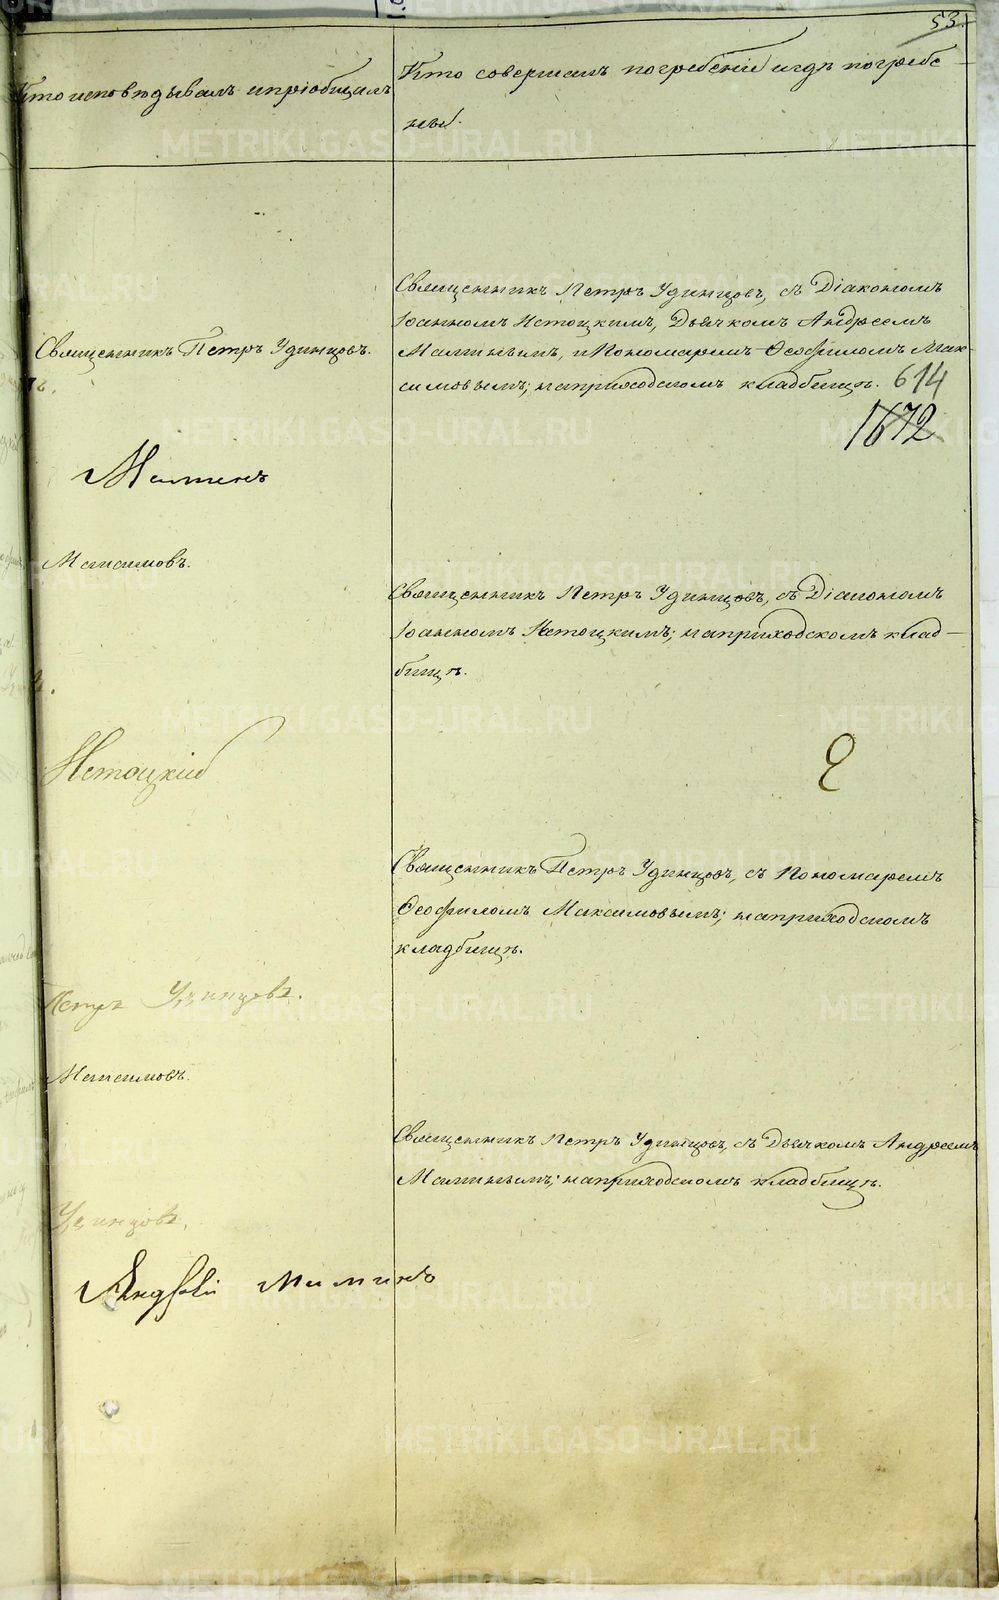 53.
Кто исповѣдывалъ и пріобщалъ
Кто совершалъ погребеніе и гдѣ погребе-
ны.
Священникъ Петръ Удинцовъ, съ Діакономъ
Іоанномъ Истоцкимъ, Дьячкомъ Андреемъ
Священникъ Петръ Удинцовъ.
Малинымъ, и Пономаремъ Ѳеофиломъ Мак-
симовымъ; на приходскомъ кладбищѣ. 614
1672
Малинъ
Максимовъ.
Священникъ Петръ Удинцовъ, съ Діакономъ
Іоанномъ Истоцкимъ; на приходскомъ клад-
бищѣ.
Истоцкій
Священникъ Петръ Удинцовъ, съ Пономаремъ
Ѳеофиломъ Максимовымъ; на приходскомъ
кладбищѣ.
Петръ Удинцовъ.
Максимовъ.
Священникъ Петръ Удинцовъ, съ Дьячкомъ Андреемъ
Малинымъ; на приходскомъ кладбищѣ.
Удинцовъ.
Андрей Малинъ
METRIKI.GASO-URAL.RU